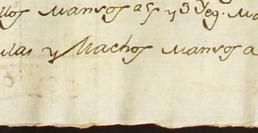 llos Mansos a 5 y 3 Yeg.
ulas y Machos Mansos a